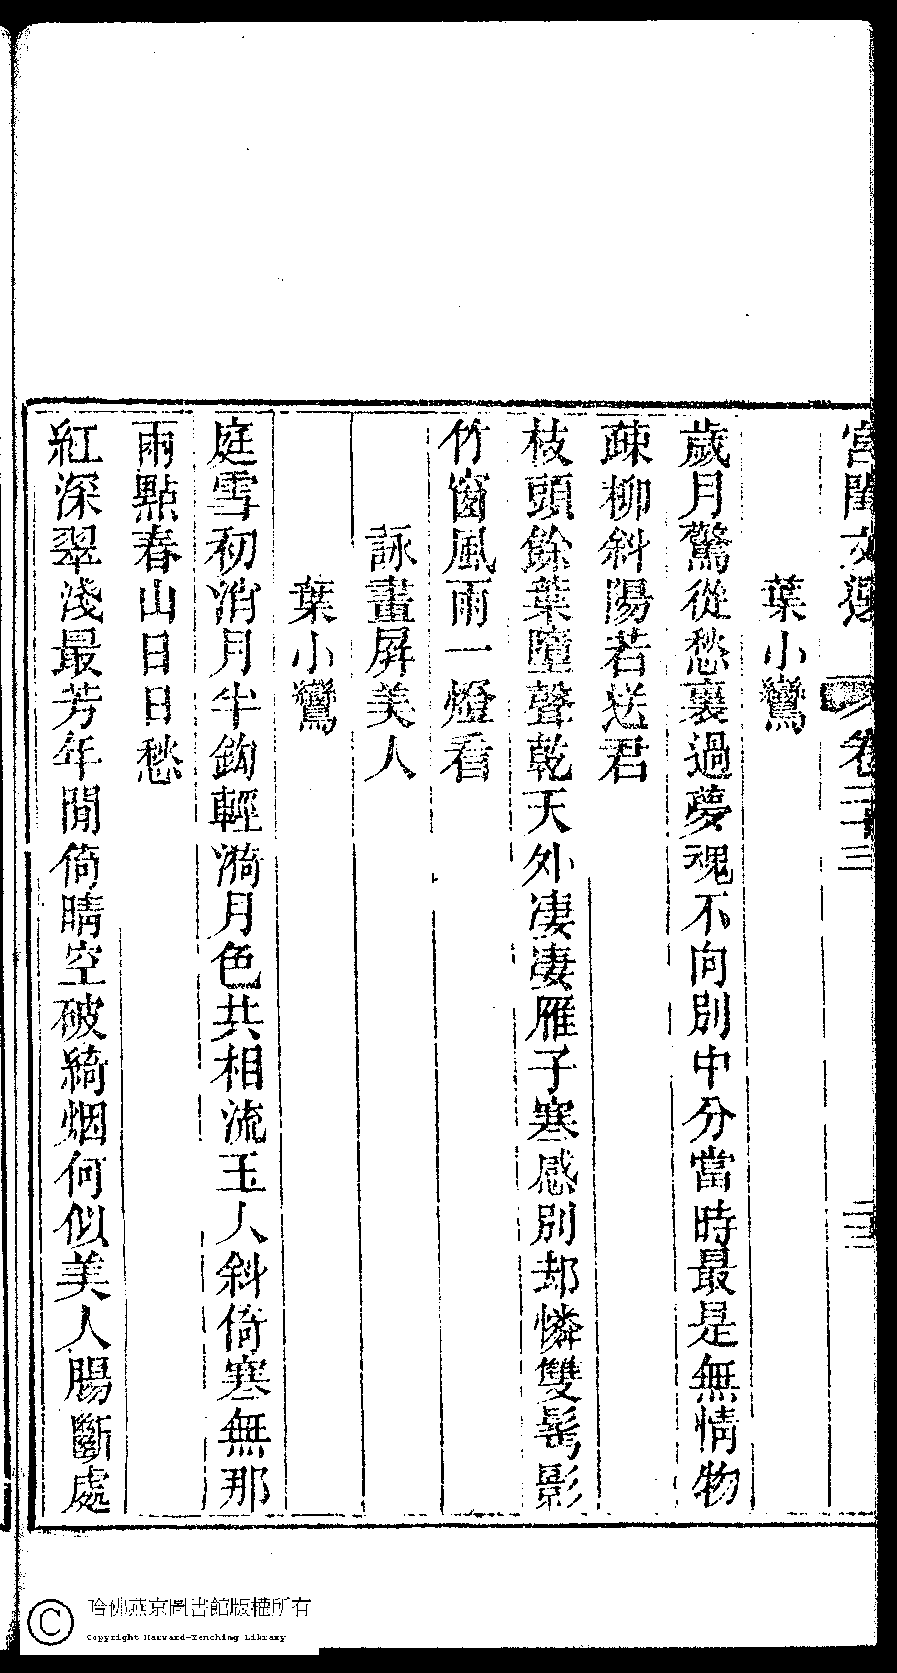 宮閨文選 卷二十三 二三
葉小鸞
歲月驚從愁裏過夢魂不向別中分當時最是無情物
疎柳斜陽若送君
枝頭餘葉墮聲乾天外凄凄雁子寒感別却憐雙髩影
竹窗風雨一燈看
詠畫屏美人
葉小鸞
庭雪初消月半鈎輕漪月色共相流玉人斜倚寒無那
兩點春山日日愁
紅深翠淺最芳年閒倚晴空破綺烟何似美人腸斷處
哈佛燕京圖書館版權所有
Copyright Harvard-Yenching Library